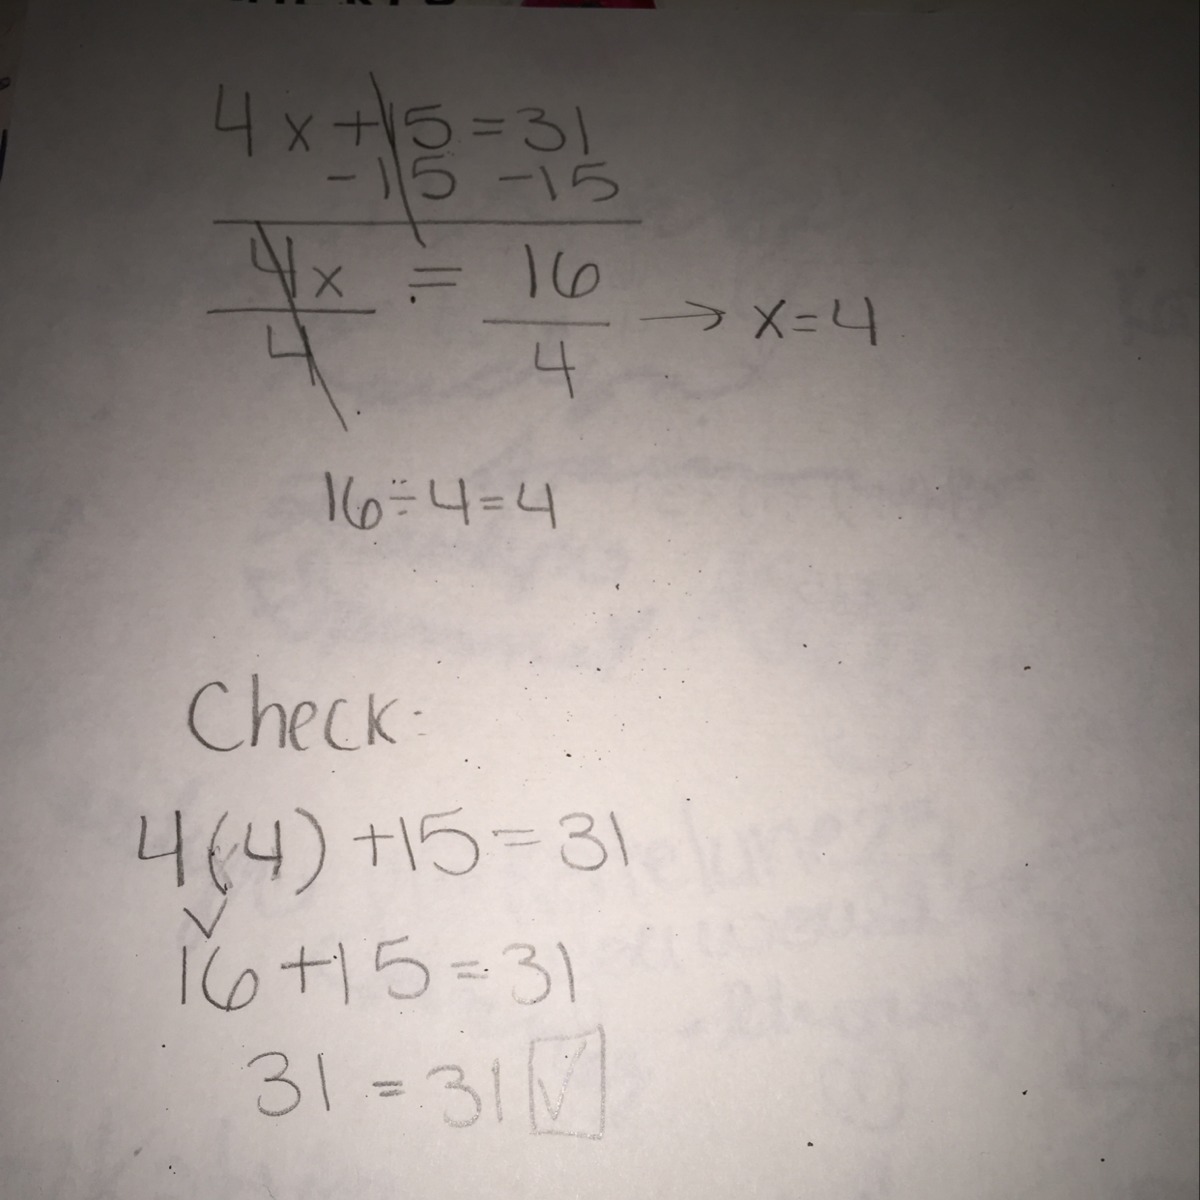 4x+15=31
-15 -15
4x = 16
4 4 → x=4
16÷4=4
Check:
4(4)+15=31
16+15=31
31=31 ✓